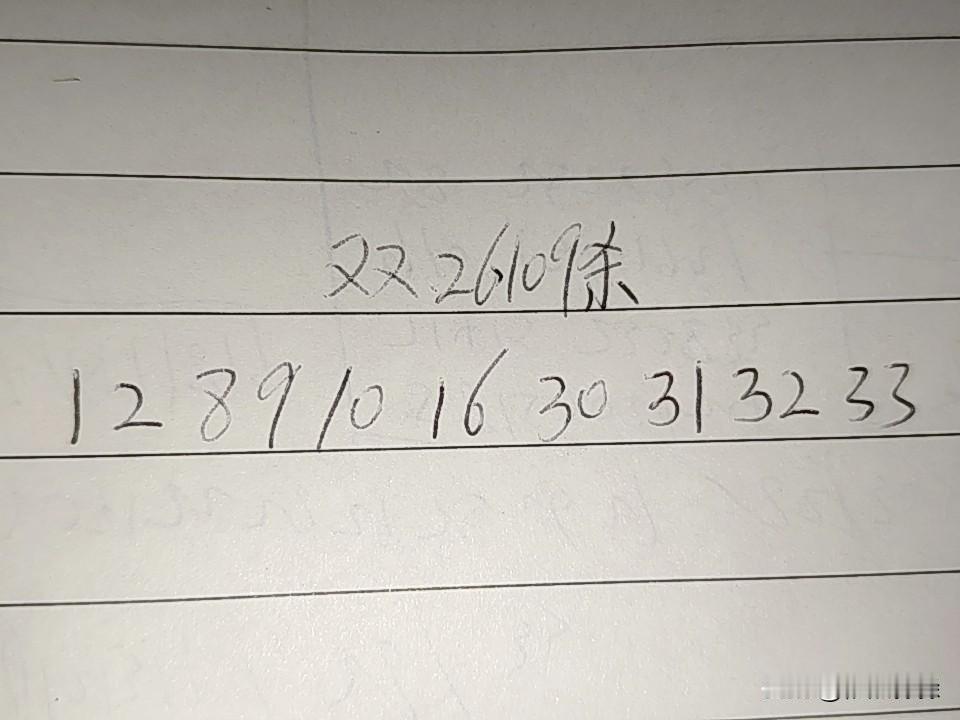 双26109杀
1 2 8 9 10 16 30 31 32 33